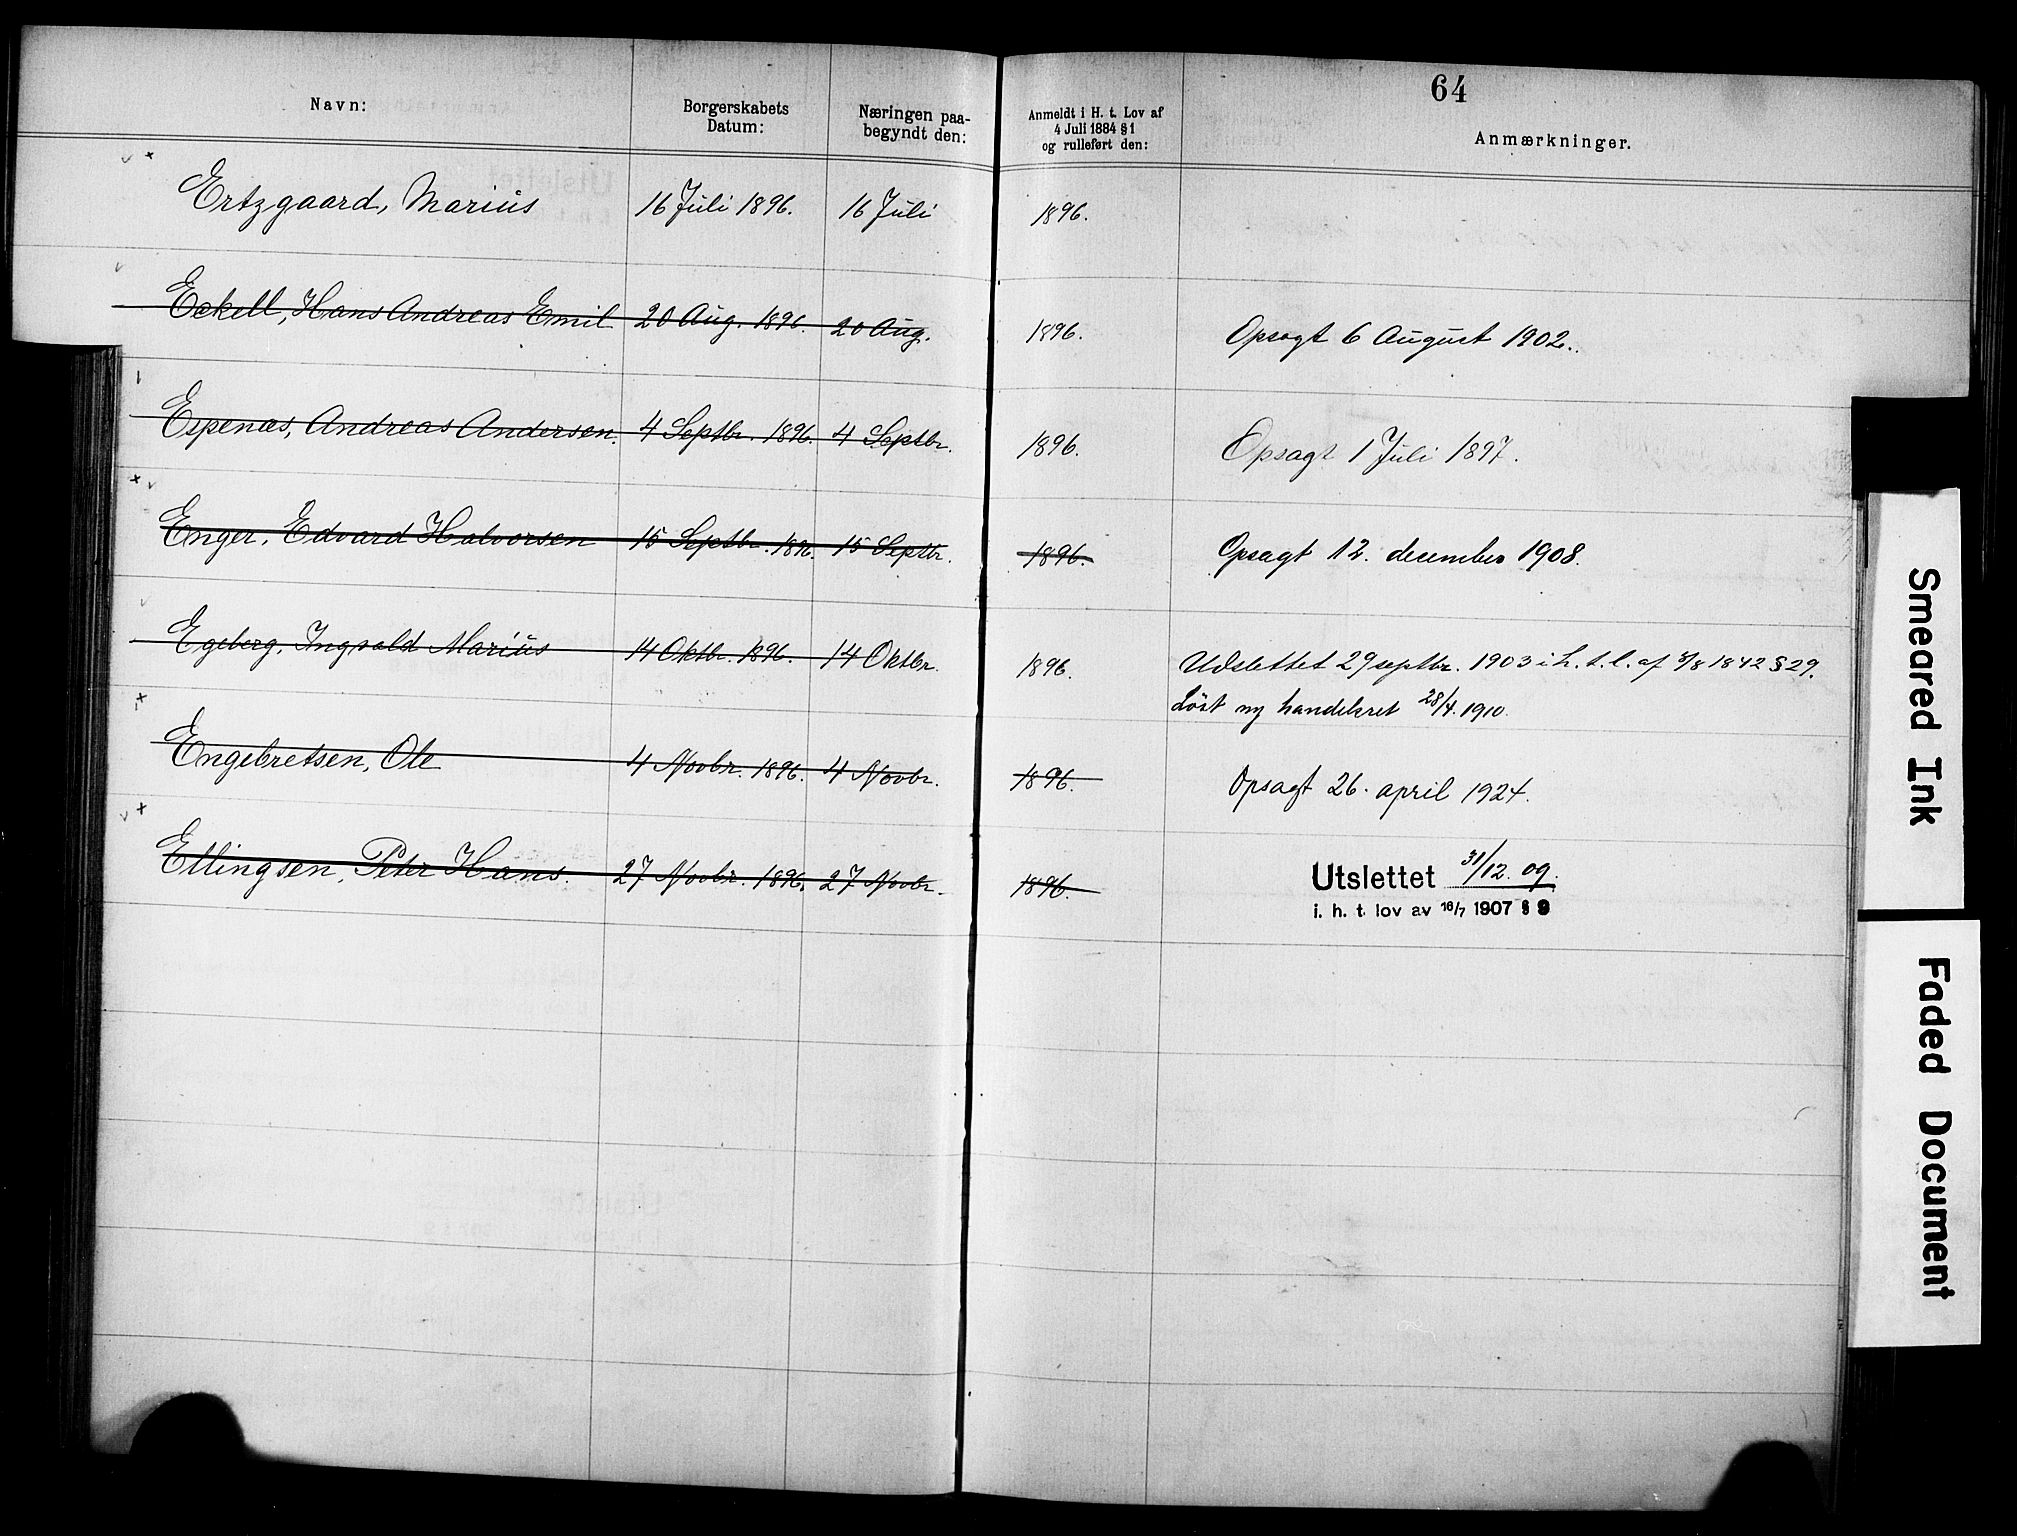 64
Navn: Borgerskabets Datum: Næringen paabegyndt den: Anmeldt i H. t. Lov af 4 Juli 1884 § 1 og rulleført den: Anmærkninger.
Ertzgaard, Marius 16 Juli 1896. 16 Juli 1896.
Eckell, Hans Andreas Emil 20 Aug. 1896. 20 Aug. 1896. Opsagt 6 August 1902.
Espenæs, Andreas Andersen. 4 Septbr. 1896. 4 Septbr. 1896. Opsagt 1 Juli 1897.
Enger, Edvard Halvorsen 15 Septbr. 1896. 15 Septbr. 1896. Opsagt 12. december 1908.
Egeberg, Ingvald Marius 14 Oktbr. 1896. 14 Oktbr. 1896. Udslettet 29 septbr. 1903 i h. t. l. af 8/8 1842 § 29.
Løst ny handelsret 28/4. 1910.
Engebretsen, Ole 4 Novbr. 1896. 4 Novbr. 1896. Opsagt 26. april 1924.
Ellingsen, Peter Hans. 27 Novbr. 1896. 27 Novbr. 1896. Utslettet 31/12. 09.
i. h. t. lov av 16/7 1907 § 9
Smeared Ink
Faded Document